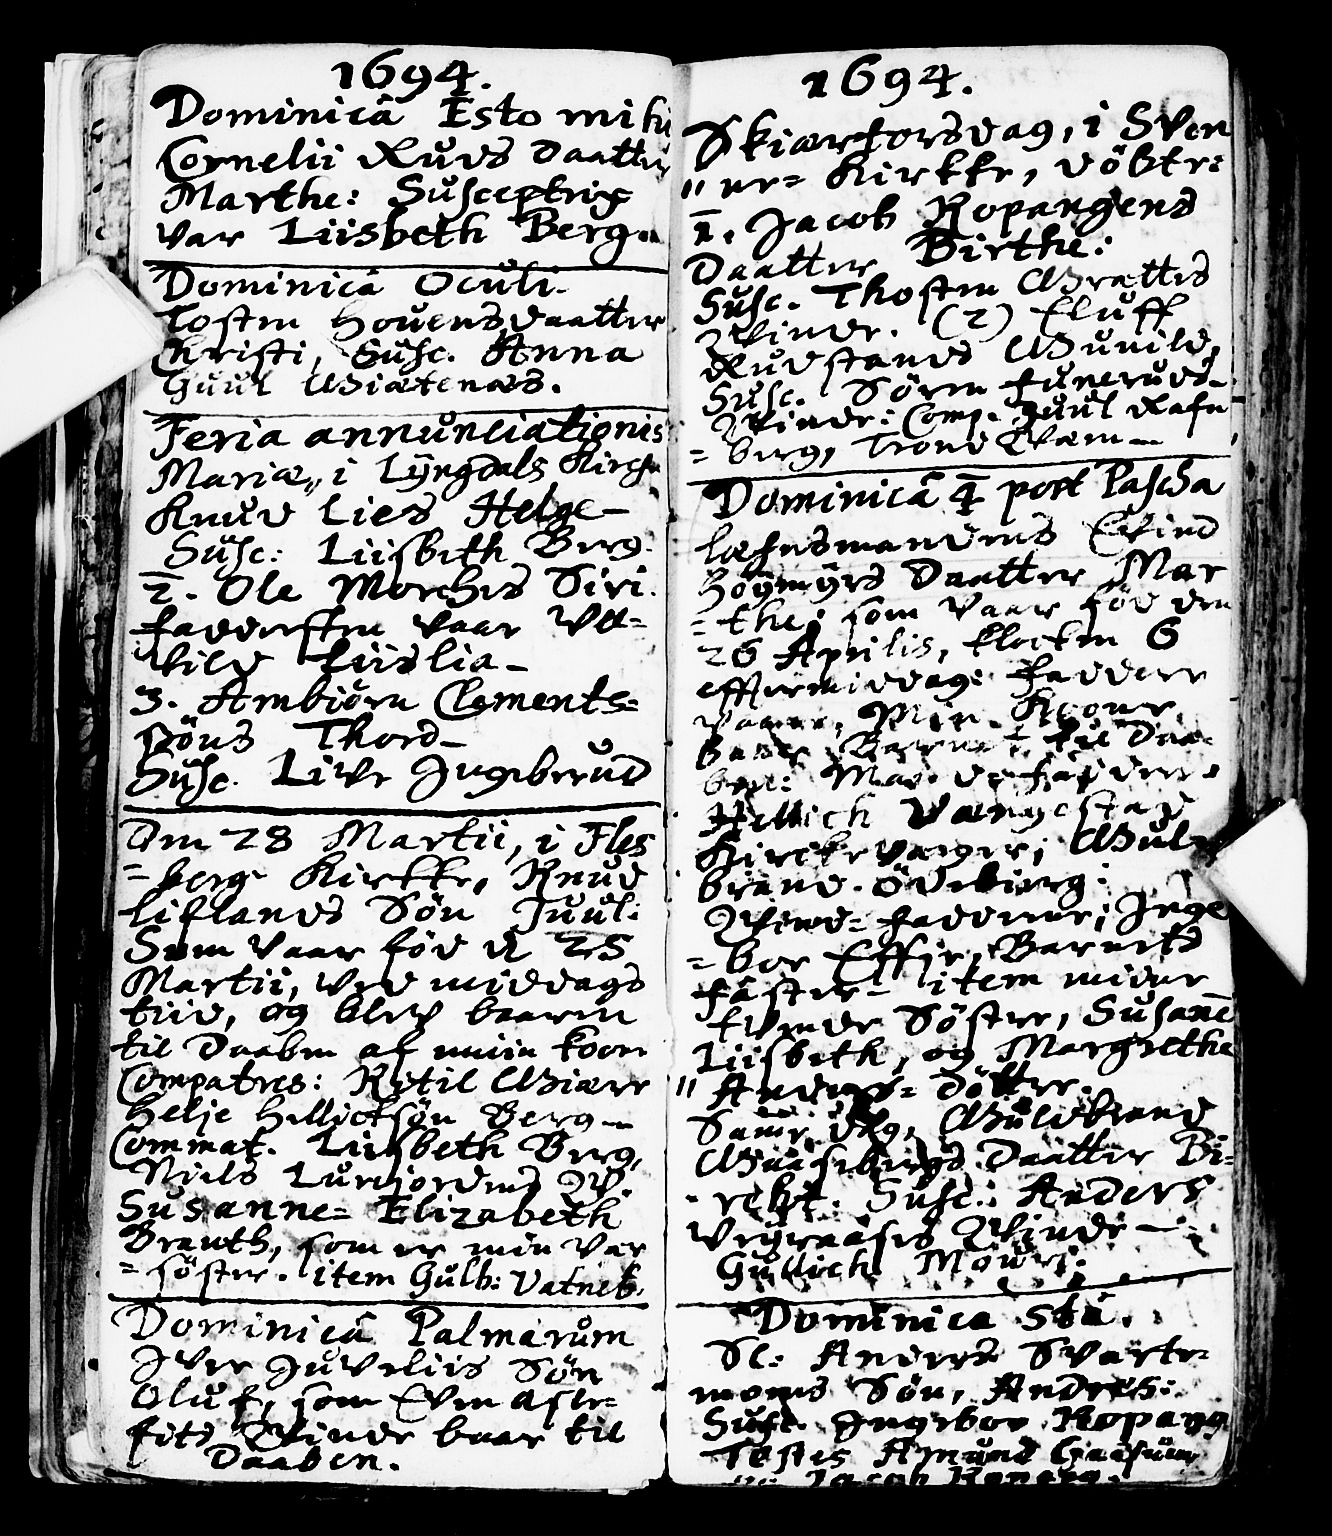 1694.
Dominicâ Esto mihi
Cornelii Ruds Daatter
Marthe: Susceptrix
var Liisbeth Berg.
Dominicâ Oculi.
Tosten Houensdaatter
Christi, Susc. Anna
Guul Giætenæs.
Feria annunciationis
Mariæ, i Lÿngdals Kirche
Knud Lies Helge
Susc: Liisbeth Berg.
2. Ole Morches Siri.
faddersten vaar
Liislia
3. Ambiörn Clements=
söns Thord
Susc. Live Ingeberud
Dm 28 Martii, i Fles
=berg Kirkke, Knud
Liflands Sön Juul:
Som vaar föd d 25
Martii, ved middags
tiid, og blef baaren
til Daaben af miin koon
Compatres: Ketil Giære
Helje Hellichsön Berg
Commat. Liisbeth Berg,
Niels Lurijordens Qv.
Susanne= Elizabeth
Brauth, som er min Var
=söster. item Gulb: Vatneb.
Dominicâ Palmarum
Iver Juveliis Sön
Oluf, som Even
Qvinde baar til
Daaben.
1694.
Skiærtorsdag, i Sven
"ne= Kirkke, döbte:
1. Jacob Ropangens
Daatter Birthe:
Susc. Thosten Brattes
Qvinde. (2) Eluff
Rudstands Gunild,
Susc. Sörn Funeruds
Qvinde: Comp. Juul Rafn
=berg, Trond
Dominicâ 4 post Pascha
Læhnsmandens Evind
Höymyrs Daatter Mar
=the: som vaar föd den
26 Aprilis, klocken 6
efftermiddag: Faddere
vaare, Min Koone
baar Barnet til Daa
ben: Mand=faddere
Hellich Vængestad
Kirckeværger, Gul
brand Ödebierg:
Qvind=faddere; Inge
=bor Effie, Barnets
faster= item mine
tvende Söstre, Susane
Liisbeth, og Margrethe
" Anders= Döttre.
Same dag, Guldbrand
Daatter Bi=
rebt. Susc: Anders
Qvinde
Gullich
Dominica 5ta.
Sc: Anders Svarte=
moens Sön, Anders:
Susc. Ingebor Ropang
Testes Amund
og Jacob Ropang.